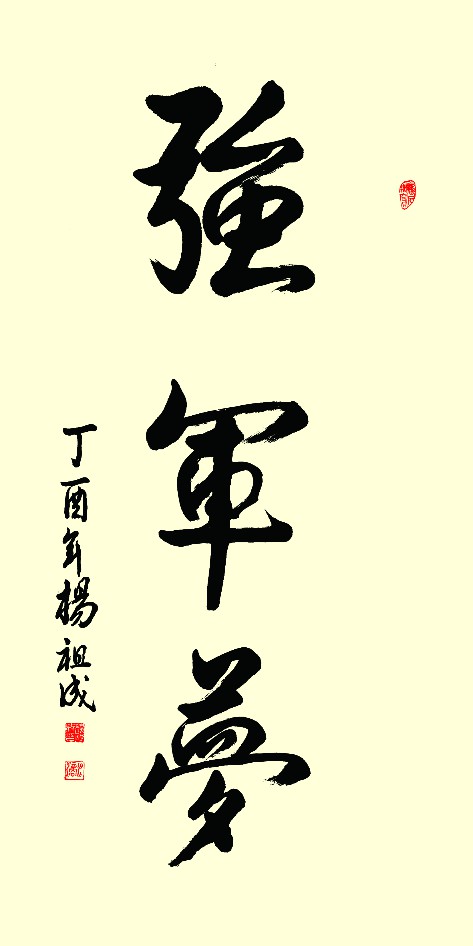 強軍夢
丁酉年楊祖成